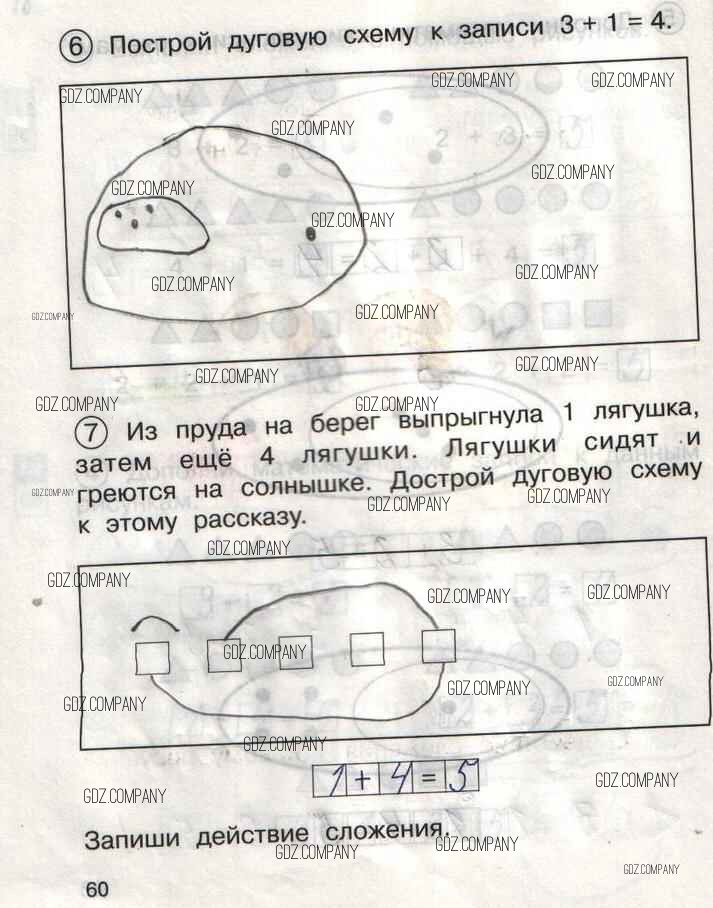 6 Построй дуговую схему к записи 3 + 1 = 4.
GDZ.COMPANY GDZ.COMPANY GDZ.COMPANY
GDZ.COMPANY
GDZ.COMPANY
GDZ.COMPANY
GDZ.COMPANY
GDZ.COMPANY GDZ.COMPANY
GDZ.COMPANY GDZ.COMPANY
GDZ.COMPANY GDZ.COMPANY
GDZ.COMPANY GDZ.COMPANY
7 Из пруда на берег выпрыгнула 1 лягушка,
затем ещё 4 лягушки. Лягушки сидят и
греются на солнышке. Дострой дуговую схему
GDZ.COMPANY GDZ.COMPANY GDZ.COMPANY
к этому рассказу.
GDZ.COMPANY
GDZ.COMPANY GDZ.COMPANY GDZ.COMPANY
GDZ.COMPANY
GDZ.COMPANY GDZ.COMPANY GDZ.COMPANY
GDZ.COMPANY
1 + 4 = 5
GDZ.COMPANY GDZ.COMPANY
Запиши действие сложения.
GDZ.COMPANY GDZ.COMPANY
GDZ.COMPANY
60